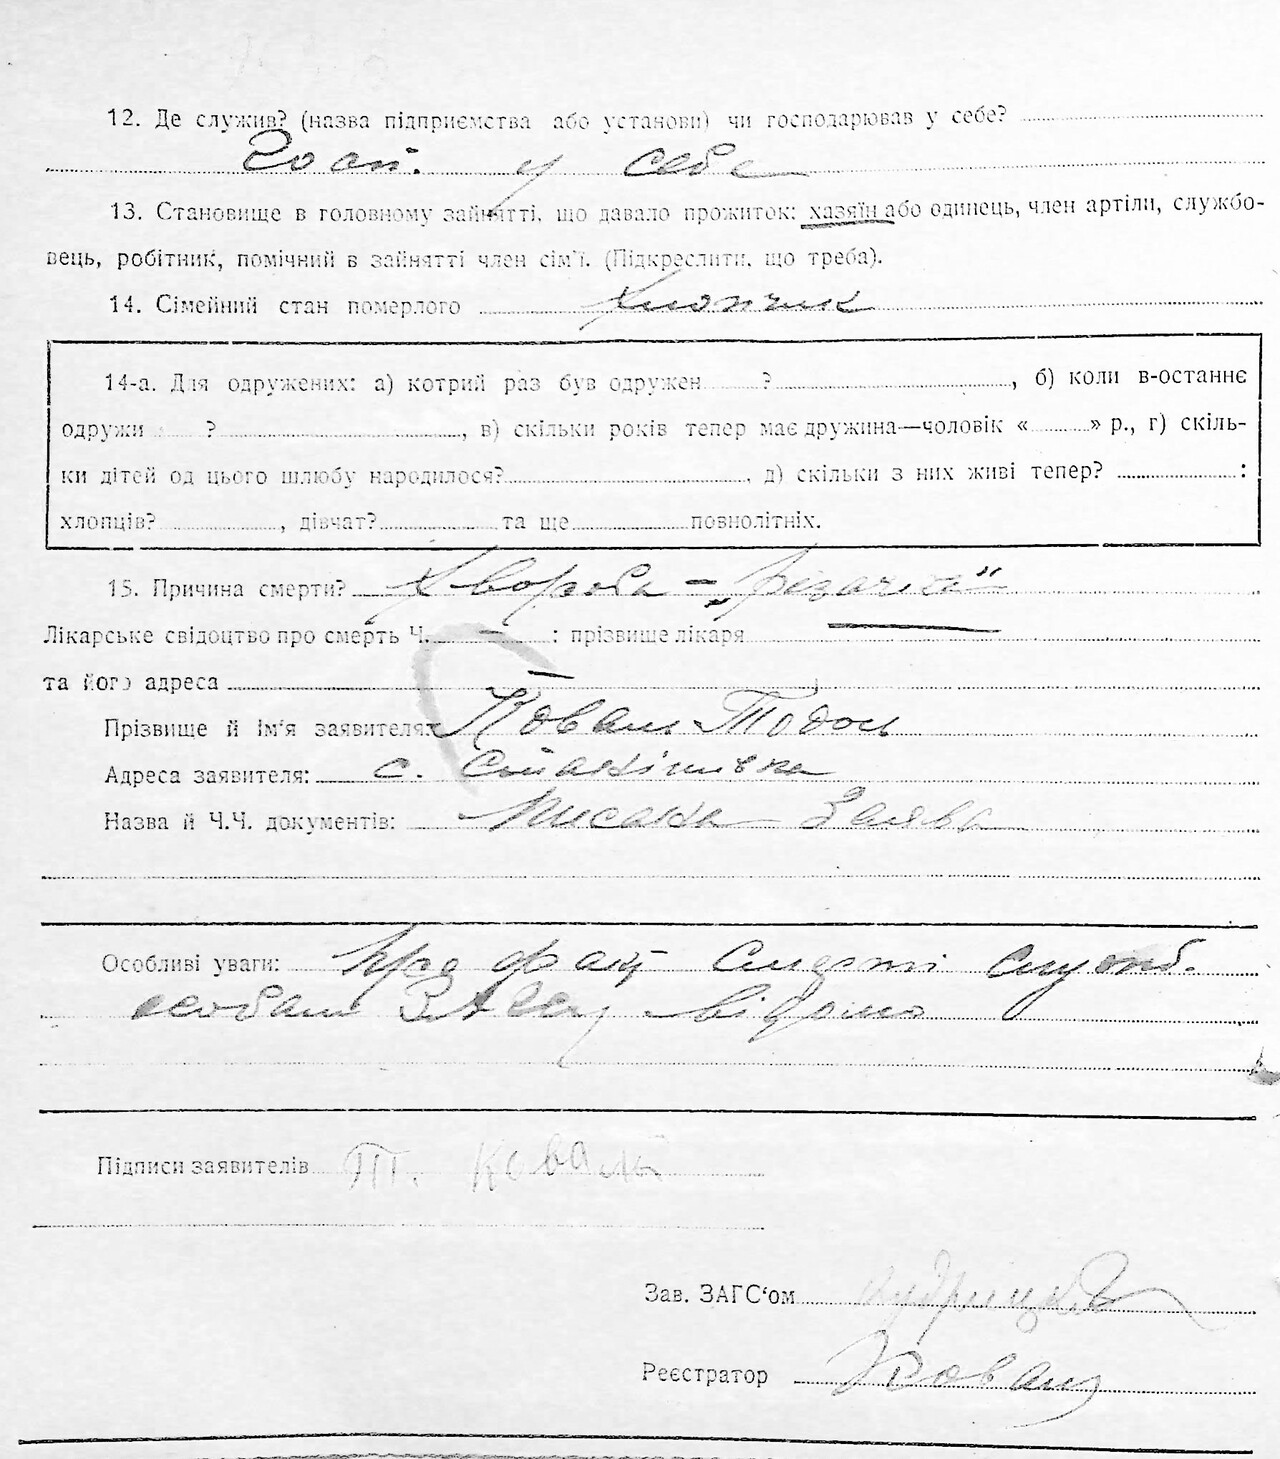 12. Де служив? (назва підприємства або установи) чи господарював у себе?
Госп. у себе
13. Становище в головному зайнятті, що давало прожиток: хазяїн або одинець, член артіли, службо-
вець, робітник, помічний в зайнятті член сім'ї. (Підкреслити, що треба).
14. Сімейний стан померлого Хлопчик
14-а. Для одружених: а) котрий раз був одружен ? , б) коли в-останнє
одружи ? , в) скільки років тепер має дружина—чоловік « » р., г) скіль-
ки дітей од цього шлюбу народилося? , д) скільки з них живі тепер? :
хлопців? , дівчат? та ще повнолітніх.
15. Причина смерти? Хвороба - „різачка"
Лікарське свідоцтво про смерть Ч. — : прізвище лікаря
та його адреса —
Прізвище й ім'я заявителя: Коваль Тодось
Адреса заявителя: с.
Назва й Ч.Ч. документів: Писана Заява
Особливі уваги: Про факт смерті
особам ЗАГСу відомо
Підписи заявителів Т. Коваль
Зав. ЗАГС'ом
Реєстратор Коваль